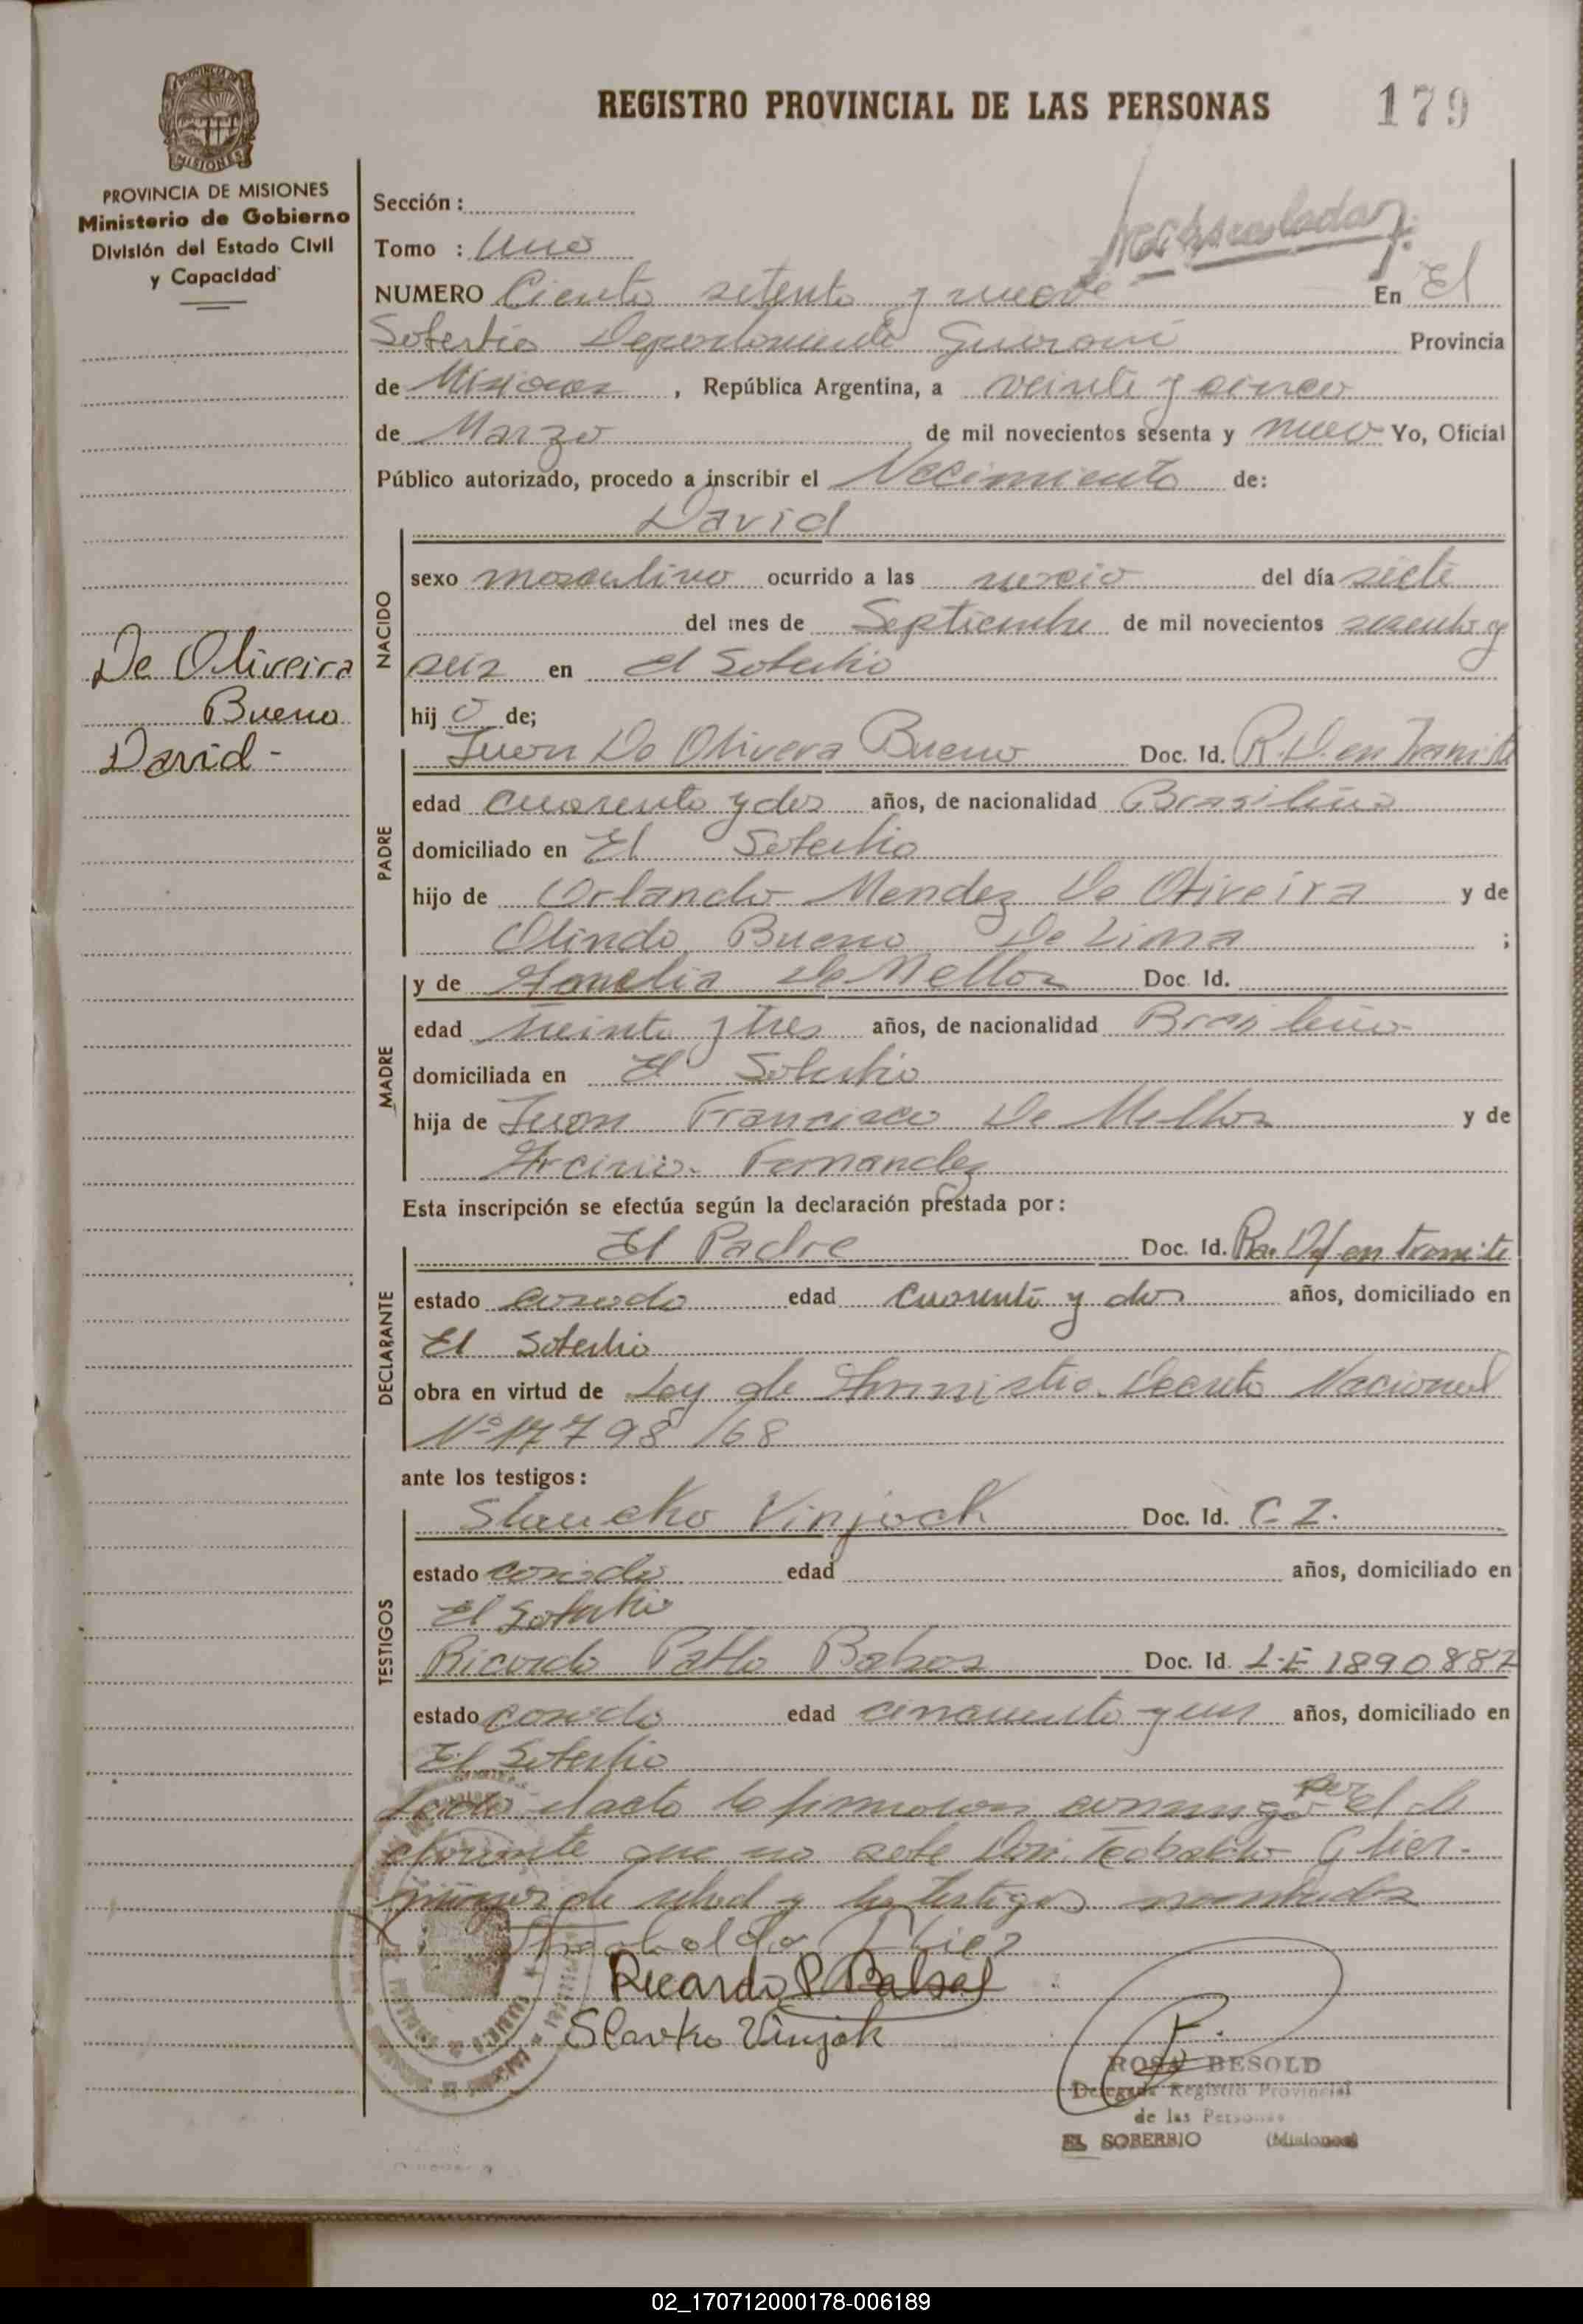 REGISTRO PROVINCIAL DE LAS PERSONAS
179
PROVINCIA DE MISIONES
Ministerio de Gobierno
División del Estado Civil
y Capacidad
Sección :
Tomo : Uno
NUMERO Ciento setenta y nueve En El
Soberbio Departamento Guaraní Provincia
de Misiones, República Argentina, a veinte y cinco
de Marzo de mil novecientos sesenta y nueve Yo, Oficial
Público autorizado, procedo a inscribir el Nacimiento de:
David
De Oliveira
Bueno
David-
NACIDO
sexo masculino ocurrido a las del día siete
del mes de Septiembre de mil novecientos sesenta y
seis en el Soberbio
hijo de;
PADRE
Juan De Olivera Bueno Doc. Id. R.D. en Tramite
edad cuarenta y dos años, de nacionalidad Brasileña
domiciliado en El Soberbio
hijo de Orlando Mendez De Oliveira y de
Olinda Bueno De Lima ;
MADRE
y de Amelia De Mellos Doc. Id.
edad treinta y tres años, de nacionalidad Brasileña
domiciliada en El Soberbio
hija de Juan Francisco De Mellos y de
Fernandez
Esta inscripción se efectúa según la declaración prestada por:
DECLARANTE
El Padre Doc. Id. en tramite
estado casado edad cuarenta y dos años, domiciliado en
El Soberbio
obra en virtud de Ley de Amnistia Decreto Nacional
Nº 17798/68
ante los testigos:
TESTIGOS
Vinjock Doc. Id. C.I.
estado casado edad años, domiciliado en
El Soberbio
Ricardo Pablo Balsas Doc. Id. L.E 1890882
estado casado edad cincuenta y un años, domiciliado en
El Soberbio
Leida el acta la firmaron conmigo por el de
clarante que no sabe Don Teobaldo
mayor de edad y los testigos nombrados
Ricardo P Balsas
Slavko Vinjok
ROSA BESOLD
Delegada Registro Provincial
de las Personas
EL SOBERBIO (Misiones)
02_170712000178-006189